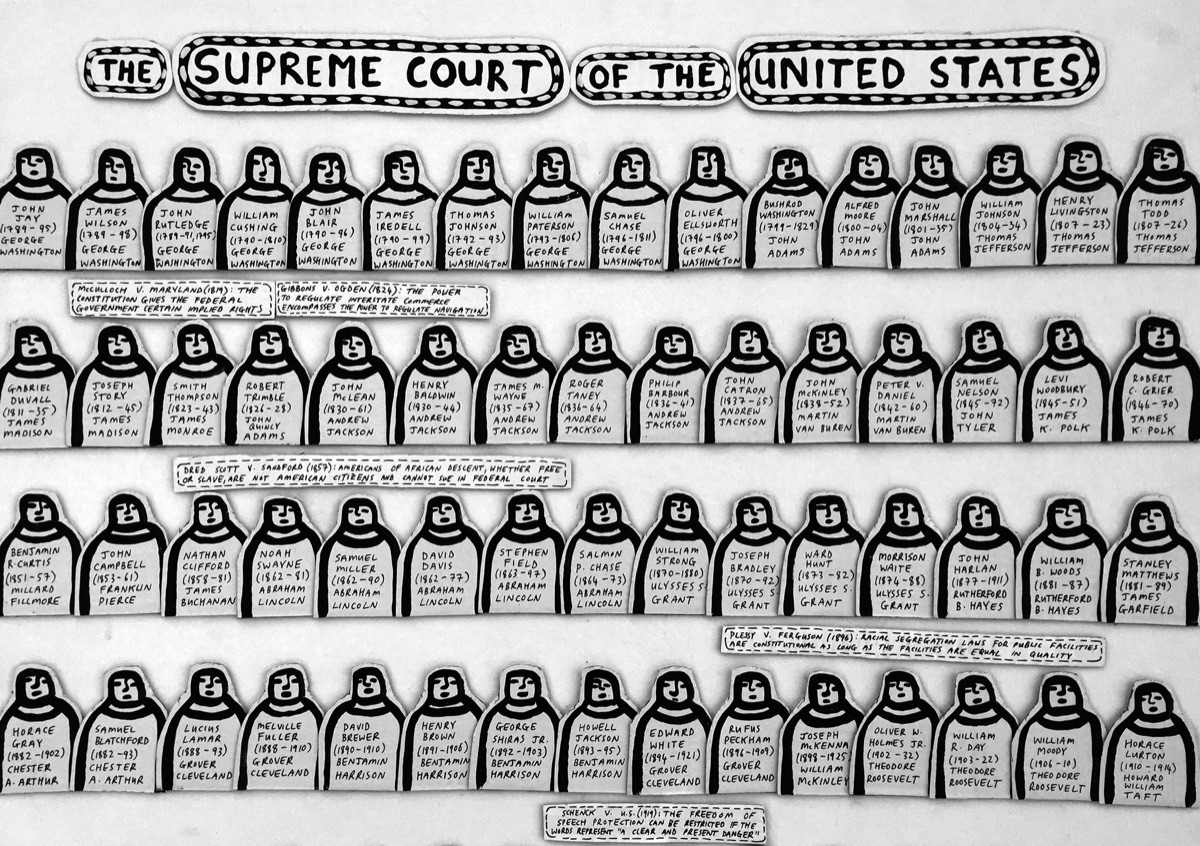 THE SUPREME COURT OF THE UNITED STATES
JOHN
JAY
(1789-95)
GEORGE
WASHINGTON
JAMES
WILSON
(1789-98)
GEORGE
WASHINGTON
JOHN
RUTLEDGE
(1789-91, 1795)
GEORGE
WASHINGTON
WILLIAM
CUSHING
(1790-1810)
GEORGE
WASHINGTON
JOHN
BLAIR
(1790-96)
GEORGE
WASHINGTON
JAMES
IREDELL
(1790-99)
GEORGE
WASHINGTON
THOMAS
JOHNSON
(1792-93)
GEORGE
WASHINGTON
WILLIAM
PATERSON
(1793-1806)
GEORGE
WASHINGTON
SAMUEL
CHASE
(1796-1811)
GEORGE
WASHINGTON
OLIVER
ELLSWORTH
(1796-1800)
GEORGE
WASHINGTON
BUSHROD
WASHINGTON
(1799-1829)
JOHN
ADAMS
ALFRED
MOORE
(1800-04)
JOHN
ADAMS
JOHN
MARSHALL
(1801-35)
JOHN
ADAMS
WILLIAM
JOHNSON
(1804-34)
THOMAS
JEFFERSON
HENRY
LIVINGSTON
(1807-23)
THOMAS
JEFFERSON
THOMAS
TODD
(1807-26)
THOMAS
JEFFERSON
McCULLOCH V. MARYLAND (1819): THE
CONSTITUTION GIVES THE FEDERAL
GOVERNMENT CERTAIN IMPLIED RIGHTS
GIBBONS V. OGDEN (1824): THE POWER
TO REGULATE INTERSTATE COMMERCE
ENCOMPASSES THE POWER TO REGULATE NAVIGATION
GABRIEL
DUVALL
(1811-35)
JAMES
MADISON
JOSEPH
STORY
(1812-45)
JAMES
MADISON
SMITH
THOMPSON
(1823-43)
JAMES
MONROE
ROBERT
TRIMBLE
(1826-28)
JOHN
QUINCY
ADAMS
JOHN
McLEAN
(1830-61)
ANDREW
JACKSON
HENRY
BALDWIN
(1830-44)
ANDREW
JACKSON
JAMES M.
WAYNE
(1835-67)
ANDREW
JACKSON
ROGER
TANEY
(1836-64)
ANDREW
JACKSON
PHILIP
BARBOUR
(1836-41)
ANDREW
JACKSON
JOHN
CATRON
(1837-65)
ANDREW
JACKSON
JOHN
McKINLEY
(1838-52)
MARTIN
VAN BUREN
PETER V.
DANIEL
(1842-60)
MARTIN
VAN BUREN
SAMUEL
NELSON
(1845-72)
JOHN
TYLER
LEVI
WOODBURY
(1845-51)
JAMES
K. POLK
ROBERT
C. GRIER
(1846-70)
JAMES
K. POLK
DRED SCOTT V. SANDFORD (1857): AMERICANS OF AFRICAN DESCENT, WHETHER FREE
OR SLAVE, ARE NOT AMERICAN CITIZENS AND CANNOT SUE IN FEDERAL COURT
BENJAMIN
R. CURTIS
(1851-57)
MILLARD
FILLMORE
JOHN
CAMPBELL
(1853-61)
FRANKLIN
PIERCE
NATHAN
CLIFFORD
(1858-81)
JAMES
BUCHANAN
NOAH
SWAYNE
(1862-81)
ABRAHAM
LINCOLN
SAMUEL
MILLER
(1862-90)
ABRAHAM
LINCOLN
DAVID
DAVIS
(1862-77)
ABRAHAM
LINCOLN
STEPHEN
FIELD
(1863-97)
ABRAHAM
LINCOLN
SALMON
P. CHASE
(1864-73)
ABRAHAM
LINCOLN
WILLIAM
STRONG
(1870-1880)
ULYSSES S.
GRANT
JOSEPH
BRADLEY
(1870-92)
ULYSSES S.
GRANT
WARD
HUNT
(1873-82)
ULYSSES S.
GRANT
MORRISON
WAITE
(1874-88)
ULYSSES S.
GRANT
JOHN
HARLAN
(1877-1911)
RUTHERFORD
B. HAYES
WILLIAM
B. WOODS
(1881-87)
RUTHERFORD
B. HAYES
STANLEY
MATTHEWS
(1881-89)
JAMES
GARFIELD
PLESSY V. FERGUSON (1896): RACIAL SEGREGATION LAWS FOR PUBLIC FACILITIES
ARE CONSTITUTIONAL AS LONG AS THE FACILITIES ARE EQUAL IN QUALITY
HORACE
GRAY
(1882-1902)
CHESTER
A. ARTHUR
SAMUEL
BLATCHFORD
(1882-93)
CHESTER
A. ARTHUR
LUCIUS
LAMAR
(1888-93)
GROVER
CLEVELAND
MELVILLE
FULLER
(1888-1910)
GROVER
CLEVELAND
DAVID
BREWER
(1890-1910)
BENJAMIN
HARRISON
HENRY
BROWN
(1891-1906)
BENJAMIN
HARRISON
GEORGE
SHIRAS JR.
(1892-1903)
BENJAMIN
HARRISON
HOWELL
JACKSON
(1893-95)
BENJAMIN
HARRISON
EDWARD
WHITE
(1894-1921)
GROVER
CLEVELAND
RUFUS
PECKHAM
(1896-1909)
GROVER
CLEVELAND
JOSEPH
McKENNA
(1898-1925)
WILLIAM
McKINLEY
OLIVER W.
HOLMES JR.
(1902-32)
THEODORE
ROOSEVELT
WILLIAM
R. DAY
(1903-22)
THEODORE
ROOSEVELT
WILLIAM
MOODY
(1906-10)
THEODORE
ROOSEVELT
HORACE
LURTON
(1910-1914)
HOWARD
WILLIAM
TAFT
SCHENCK V. U.S. (1919): THE FREEDOM OF
SPEECH PROTECTION CAN BE RESTRICTED IF THE
WORDS REPRESENT "A CLEAR AND PRESENT DANGER"